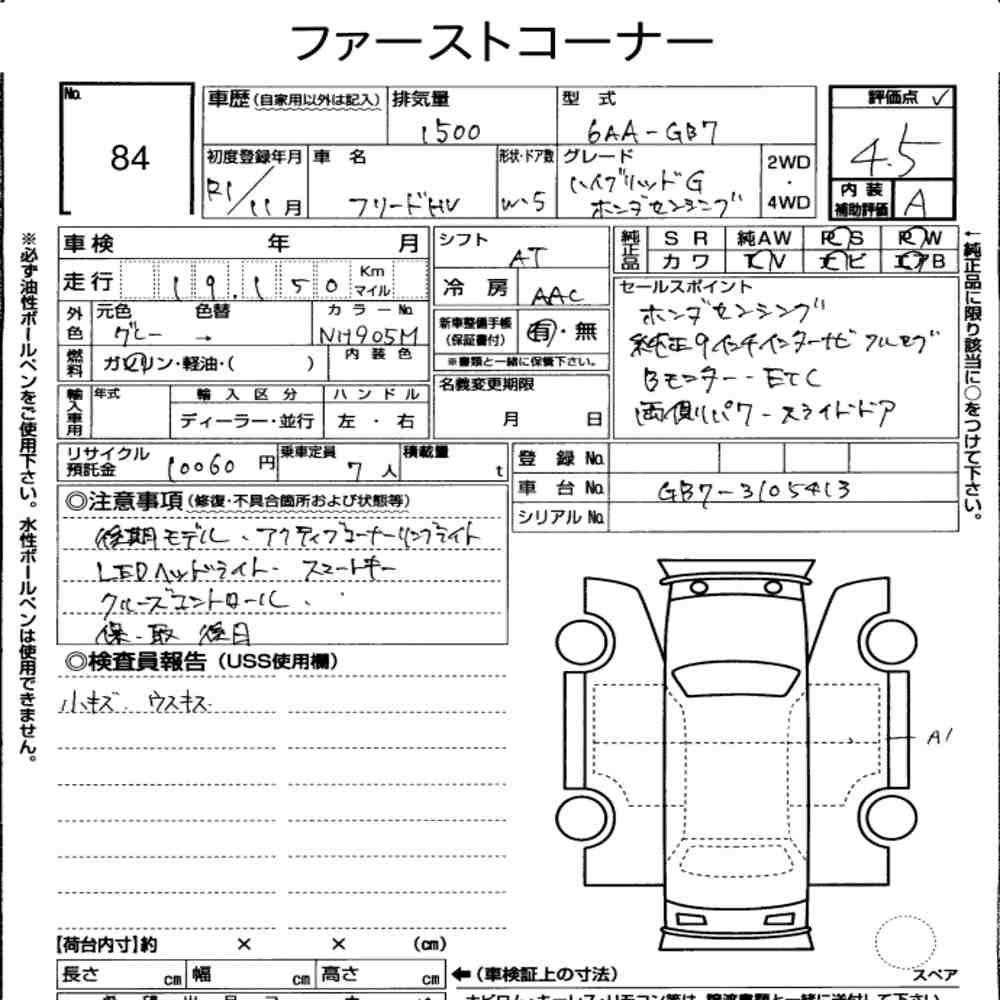 ファーストコーナー
No.
84
車歴(自家用以外は記入)
排気量
1500
型式
6AA-GB7
評価点 ✓
4.5
内装
補助評価
A
初度登録年月
R1/11月
車名
フリードHV
形状・ドア数
W・5
グレード
ハイブリッドG
ホンダセンシング
2WD
・
4WD
※必ず油性ボールペンをご使用下さい。水性ボールペンは使用できません。
車検 年 月
走行 19,150 Km マイル
外色
元色
グレー
色替
→
カラーNo.
NH905M
燃料
ガソリン・軽油・( )
内装色
輸入車用
年式
輸入区分
ディーラー・並行
ハンドル
左・右
シフト
AT
冷房
AAC
新車整備手帳
(保証書付)
有・無
※書類と一緒に保管下さい。
名義変更期限
月 日
純正品
SR 純AW PS PW
カワ TV ナビ エアB
セールスポイント
ホンダセンシング
純正9インチインターナビ フルセグ
Bモニター・ETC
両側パワースライドドア
←純正品に限り該当に○をつけて下さい。
リサイクル
預託金
10060円
乗車定員
7人
積載量
t
登録No.
車台No.
GB7-3105413
シリアルNo.
◎注意事項(修復・不具合箇所および状態等)
後期モデル、アクティブコーナーリングライト
LEDヘッドライト・スマートキー
クルーズコントロール、
保・取 後日
◎検査員報告(USS使用欄)
小キズ、ウスキズ
A1
【荷台内寸】約 × × (cm)
長さ cm 幅 cm 高さ cm
←(車検証上の寸法)
スペア